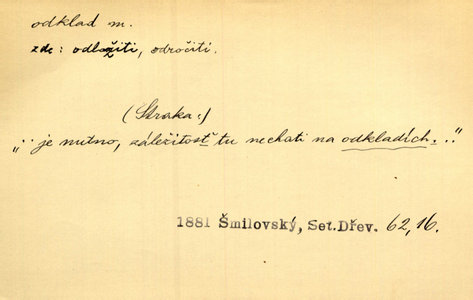 odklad m.
zde: odložiti, odročiti.
(Straka:)
„¨ je nutno, záležitosť tu nechati na odkladích..."
1881 Šmilovský, Set.Dřev. 62,16.